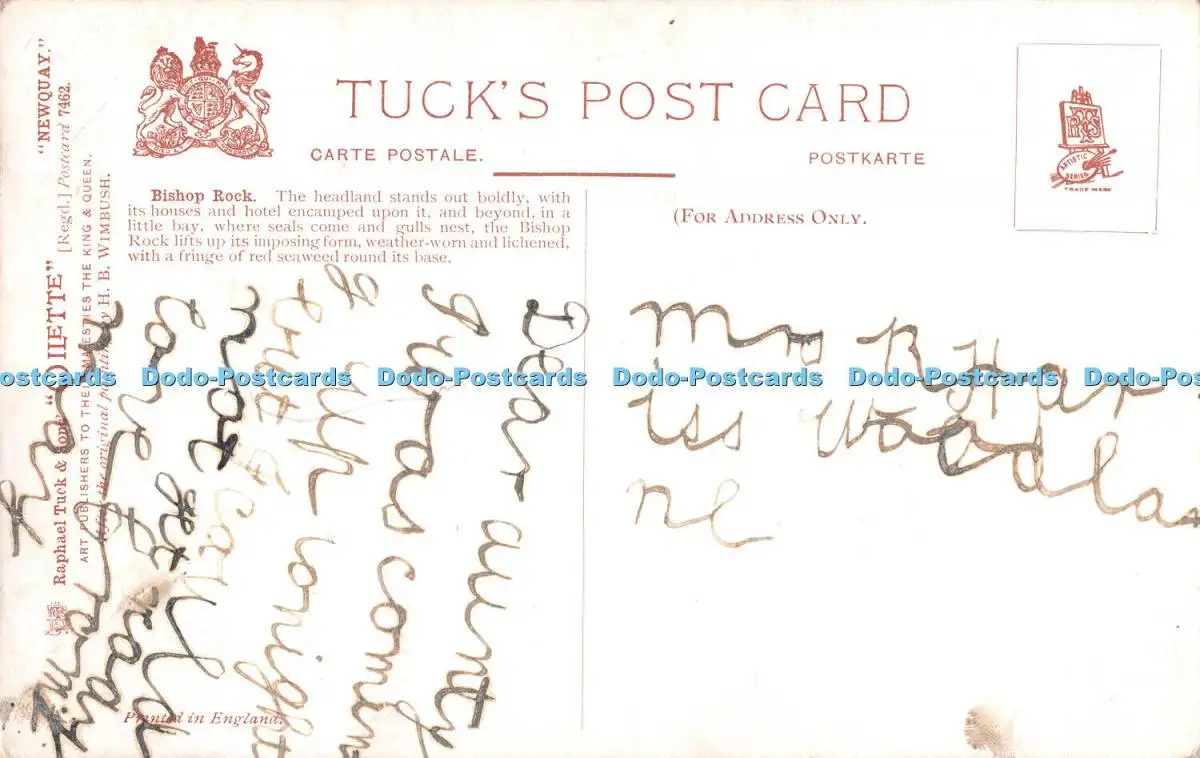 TUCK'S POST CARD
CARTE POSTALE.
POSTKARTE
(FOR ADDRESS ONLY.
ARTISTIC SERIES
TRADE MARK
Bishop Rock. The headland stands out boldly, with
its houses and hotel encamped upon it, and beyond, in a
little bay, where seals come and gulls nest, the Bishop
Rock lifts up its imposing form, weather-worn and lichened,
with a fringe of red seaweed round its base.
"NEWQUAY."
[Regd.] Postcard 7462.
Raphael Tuck & Sons' "OILETTE"
ART PUBLISHERS TO THEIR MAJESTIES THE KING & QUEEN.
After the original painting by H. B. WIMBUSH.
Dear aunty
I was comin
g up onight
but I
not get
Printed in England.
Mrs R Har
Woodla
Dodo-Postcards Dodo-Postcards Dodo-Postcards Dodo-Postcards Dodo-Postcards